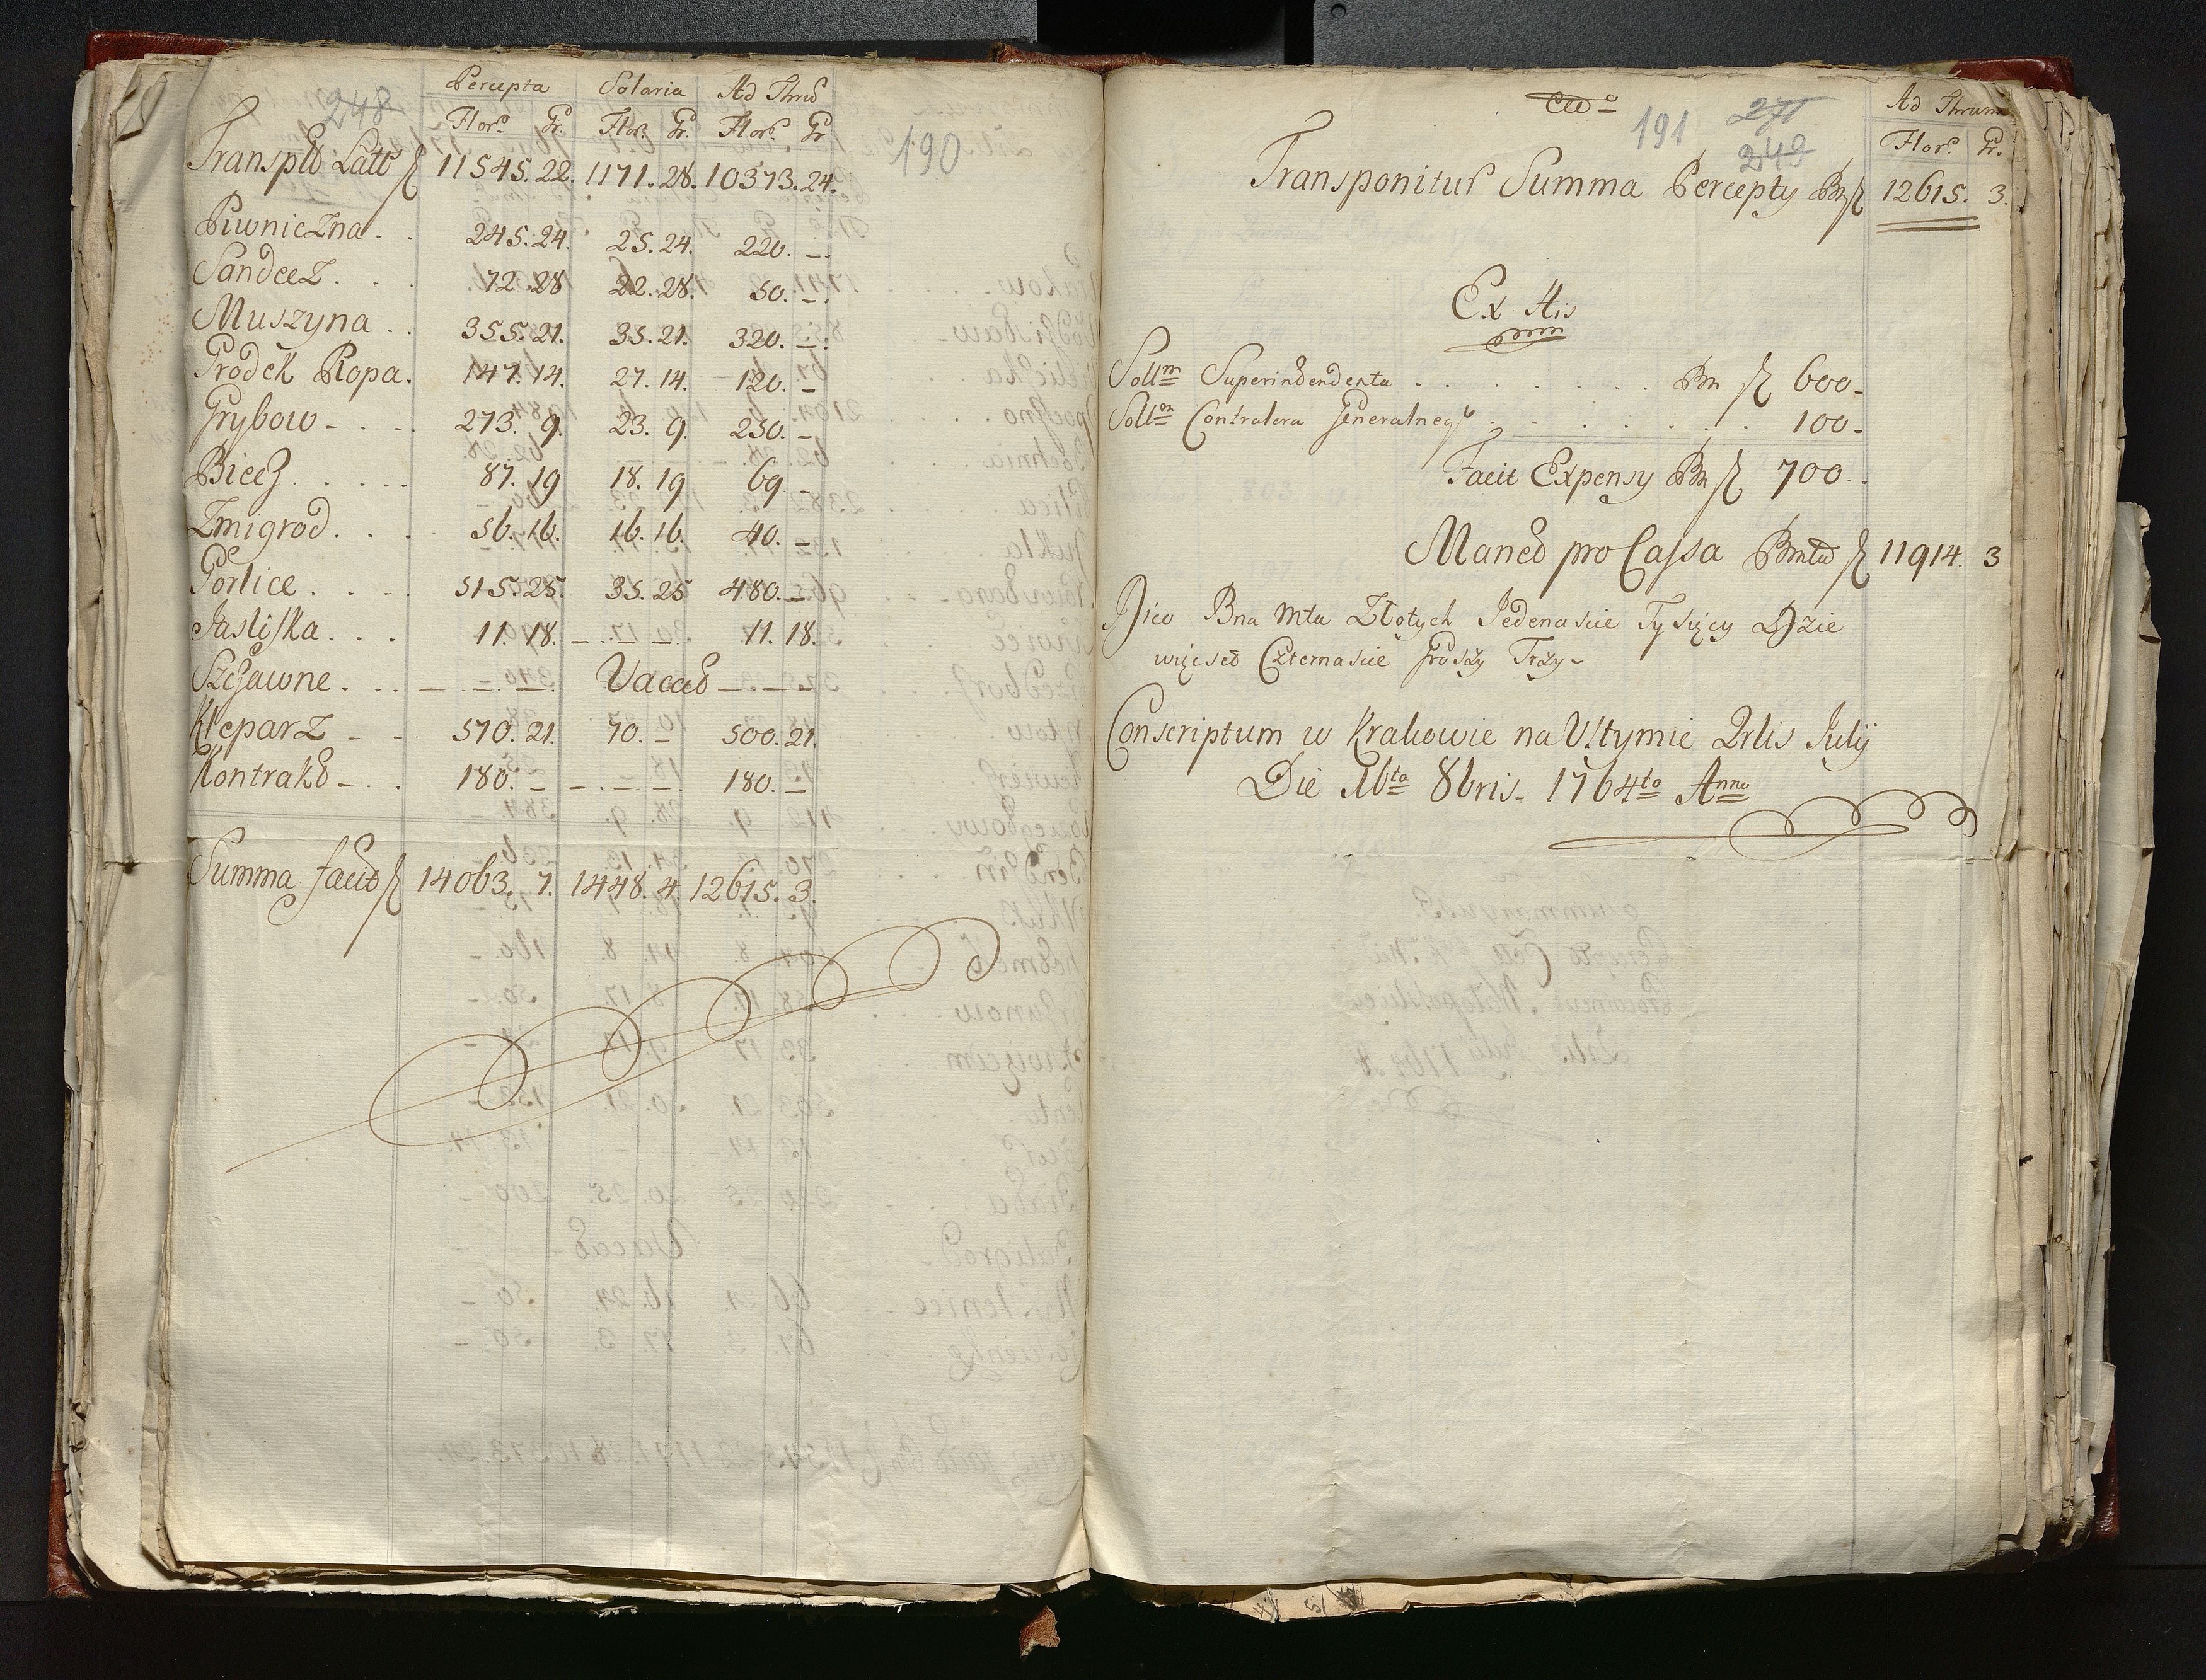 248
190
Percepta Solaria Ad Thrus
Flor. Gr. Flor. Gr. Flor. Gr
Transpto Latt fl 11545. 22. 1171. 28. 10373. 24.
Piwniczna . . 245. 24. 25. 24. 220. –
Sandecz . . . 72. 28 22. 28. 50. –
Muszyna . . 355. 21. 35. 21. 320. –
Grodek Ropa. 147. 14. 27. 14. 120. –
Grybow – . . . 273. 9. 23. 9. 250. –
Biecz . . . . . 87. 19 18. 19 69. –
Zmigrod . . . 56. 16. 16. 16. 40. –
Gorlice . . . . 515. 25. 35. 25 480. –
Jasliska . . . 11. 18. – . – . – 11. 18.
Szczawne . . . – . – . – Vacad – . – . –
Kleparz – . . 570. 21. 70. – 500. 21.
Kontrakt – . . 180. – – . – . – 180. –
Summa facit fl 14063. 7. 1448. 4. 12615. 3.
191
271
249
Ad Thrum
Flor. Gr.
Transponitur Summa Percepty Bn fl 12615. 3.
Ex His
Sollm Superindendenta . . . . . . . Bn fl 600 –
Sollm Contralera Generalnego . . . . . . . 100 –
Facit Expensy Bn fl 700 .
Maned pro Cassa fl 11914. 3
Dico Bna Mta Złotych Jedenascie Tysięcy Dzie
więcset Czternascie Groszy Trzy –
Conscriptum w Krakowie na Ultymie Qrlis Julÿ
Die 16ta 8bris – 1764to Anno